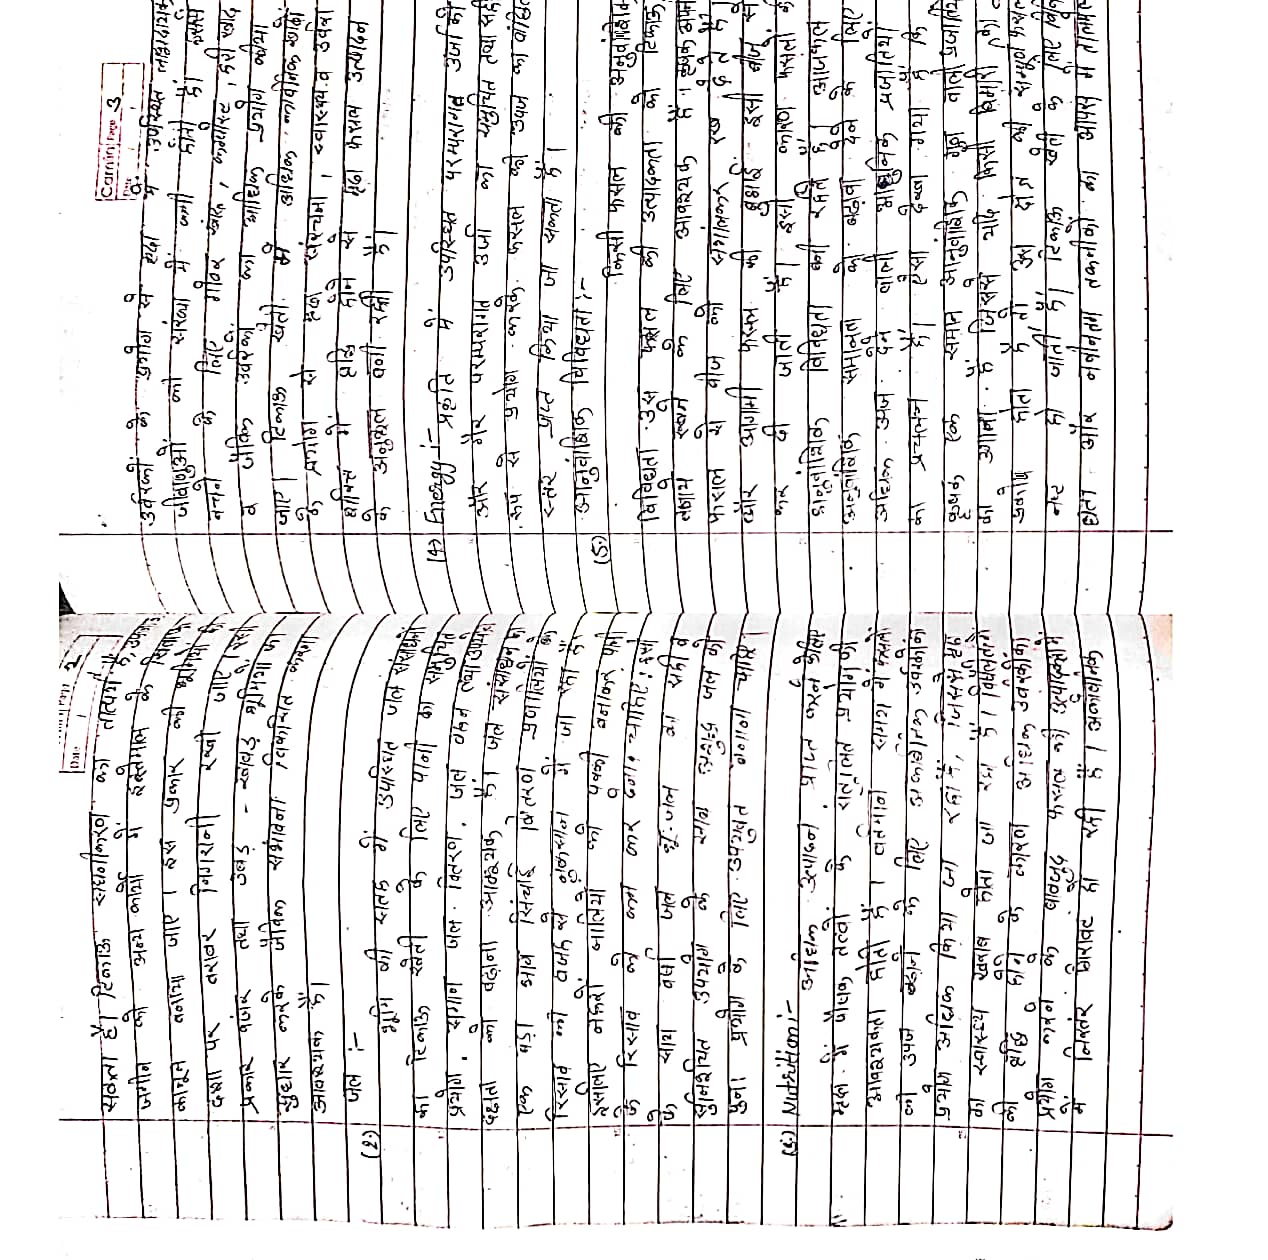 Date
सकता है। टिकाऊ सघनीकरण का तात्पर्य
जमीन को अन्य कार्यों में इस्तेमाल के
कानून बनाया जाए। इस प्रकार की भूमि
दशा पर बराबर निगरानी रखी जाए।
प्रकार बंजर तथा उबड़ - खाबड़ भूमि
सुधार करके जैविक संभावना विकसित करना
आवश्यक है।
(2.) जल :-
भूमि की सतह में उपस्थित जल संसाधनों
को टिकाऊ खेती के लिए पानी का समुचित
प्रयोग, समान जल वितरण, जल वहन तथा
दक्षता को बढ़ाना आवश्यक है। जल संसाधन
एक बड़ा भाग सिंचाई वितरण प्रणालियों के
रिसाव की वजह से नुकसान में जा रहा है
इसलिए नहरों नालियों को पक्की बनाकर पानी
के रिसाव को कम कर देना चाहिए; इसी
के साथ वर्षा जल व भू-जल का सही व
सुनिश्चित उपयोग के साथ अशुद्ध जल को
पुनः प्रयोग के लिए उपयुक्त बनाना चाहिए।
(3.) Nutrition:-
अधिक उत्पादन प्राप्त करने हेतु
मृदा में पोषक तत्वों के संतुलित प्रयोग की
आवश्यकता होती है। वर्तमान समय में फसल
की उपज बढ़ाने के लिए अकार्बनिक उर्वरकों का
प्रयोग अधिक किया जा रहा है, जिससे मृदा
का स्वास्थ्य खराब होता जा रहा है।
की वृद्धि व मांग के कारण अधिक उर्वरकों का
प्रयोग करने के बावजूद फसल की उत्पादकता
में निरंतर गिरावट हो रही है। अकार्बनिक
Camlin Page 3
Date
उर्वरकों के प्रयोग से मृदा में उपस्थित लाभदायक
जीवाणुओं की संख्या में कमी होती है। इससे
बचने के लिए गोबर खाद, कम्पोस्ट, हरी खाद
व जैविक उर्वरकों का अधिक प्रयोग किया
जाए। टिकाऊ खेती में अधिक कार्बनिक खादों
के प्रयोग से मृदा संरचना, स्वास्थ्य व उर्वरा
शक्ति में वृद्धि होने से मृदा फसल उत्पादन
के अनुकूल बनी रहती है।
(4.) Energy:- प्रकृति में उपस्थित परम्परागत उर्जा
और गैर परम्परागत उर्जा का समुचित तथा सही
रूप से प्रयोग करके फसल की उपज का वांछित
स्तर प्राप्त किया जा सकता है।
(5.) आनुवांशिक विविधता :-
किसी फसल की आनुवांशिक
विविधता उस फसल की उत्पादकता को टिकाऊ
बनाये रखने के लिए आवश्यक है। कृषक अपनी
फसल से बीज को संभालकर रख देते हैं।
और अगामी फसल की बुआई इसी बीज से
कर दी जाती है। इसी कारण फसलों की
अनुवांशिक विविधता बनी रहती है। आजकल
अनुवांशिक समानता को बढ़ावा देने के लिए
अधिक उपज देने वाली आधुनिक प्रजातियों
का प्रचलन है। ऐसा देखा गया है कि
कृषक एक समान आनुवांशिक गुण वाली प्रजाति
को उगाता है जिससे यदि किसी बिमारी का
प्रकोप होता है तो उस क्षेत्र की सम्पूर्ण फसल
नष्ट हो जाती है। टिकाऊ खेती के लिए
और नवीनतम तकनीकों का आपस में तालमेल